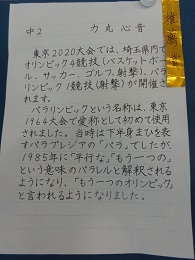 中2 力丸心音
推薦賞
東京2020大会では、埼玉県内で
オリンピック4競技(バスケットボー
ル、サッカー、ゴルフ、射撃)、パラ
リンピック1競技(射撃)が開催さ
れます。
パラリンピックという名称は、東京
1964大会で愛称として初めて使
用されました。当時は下半身まひを表
すパラプレジアの「パラ」でしたが、
1985年に「平行な」「もう一つの」
という意味のパラレルと解釈される
ようになり、「もう一つのオリンピック」
と言われるようになりました。